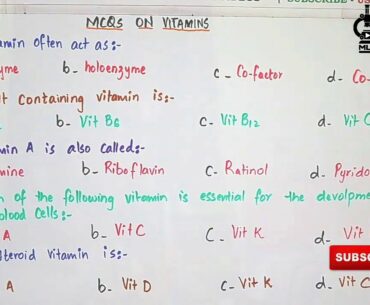 SUBSCRIBE
MCQS ON VITAMINS
amin often act as:-
yme b- holoenzyme c- Co-factor d- Co-
t Containing vitamin is:-
b- Vit B6 c- Vit B12 d- Vit C
min A is also called:-
mine b- Riboflavin c- Ratinol d- Pyrido
n of the following vitamin is essential for the devolpme
blood Cells:-
A b- Vit C C- Vit K d- Vit
Steroid vitamin is:-
SUBSC
A b- Vit D c- Vit K d- Vit C